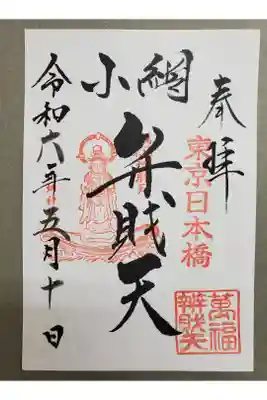 奉拝
東京日本橋
萬福
辨財天
小網
弁財天
令和六年五月十日